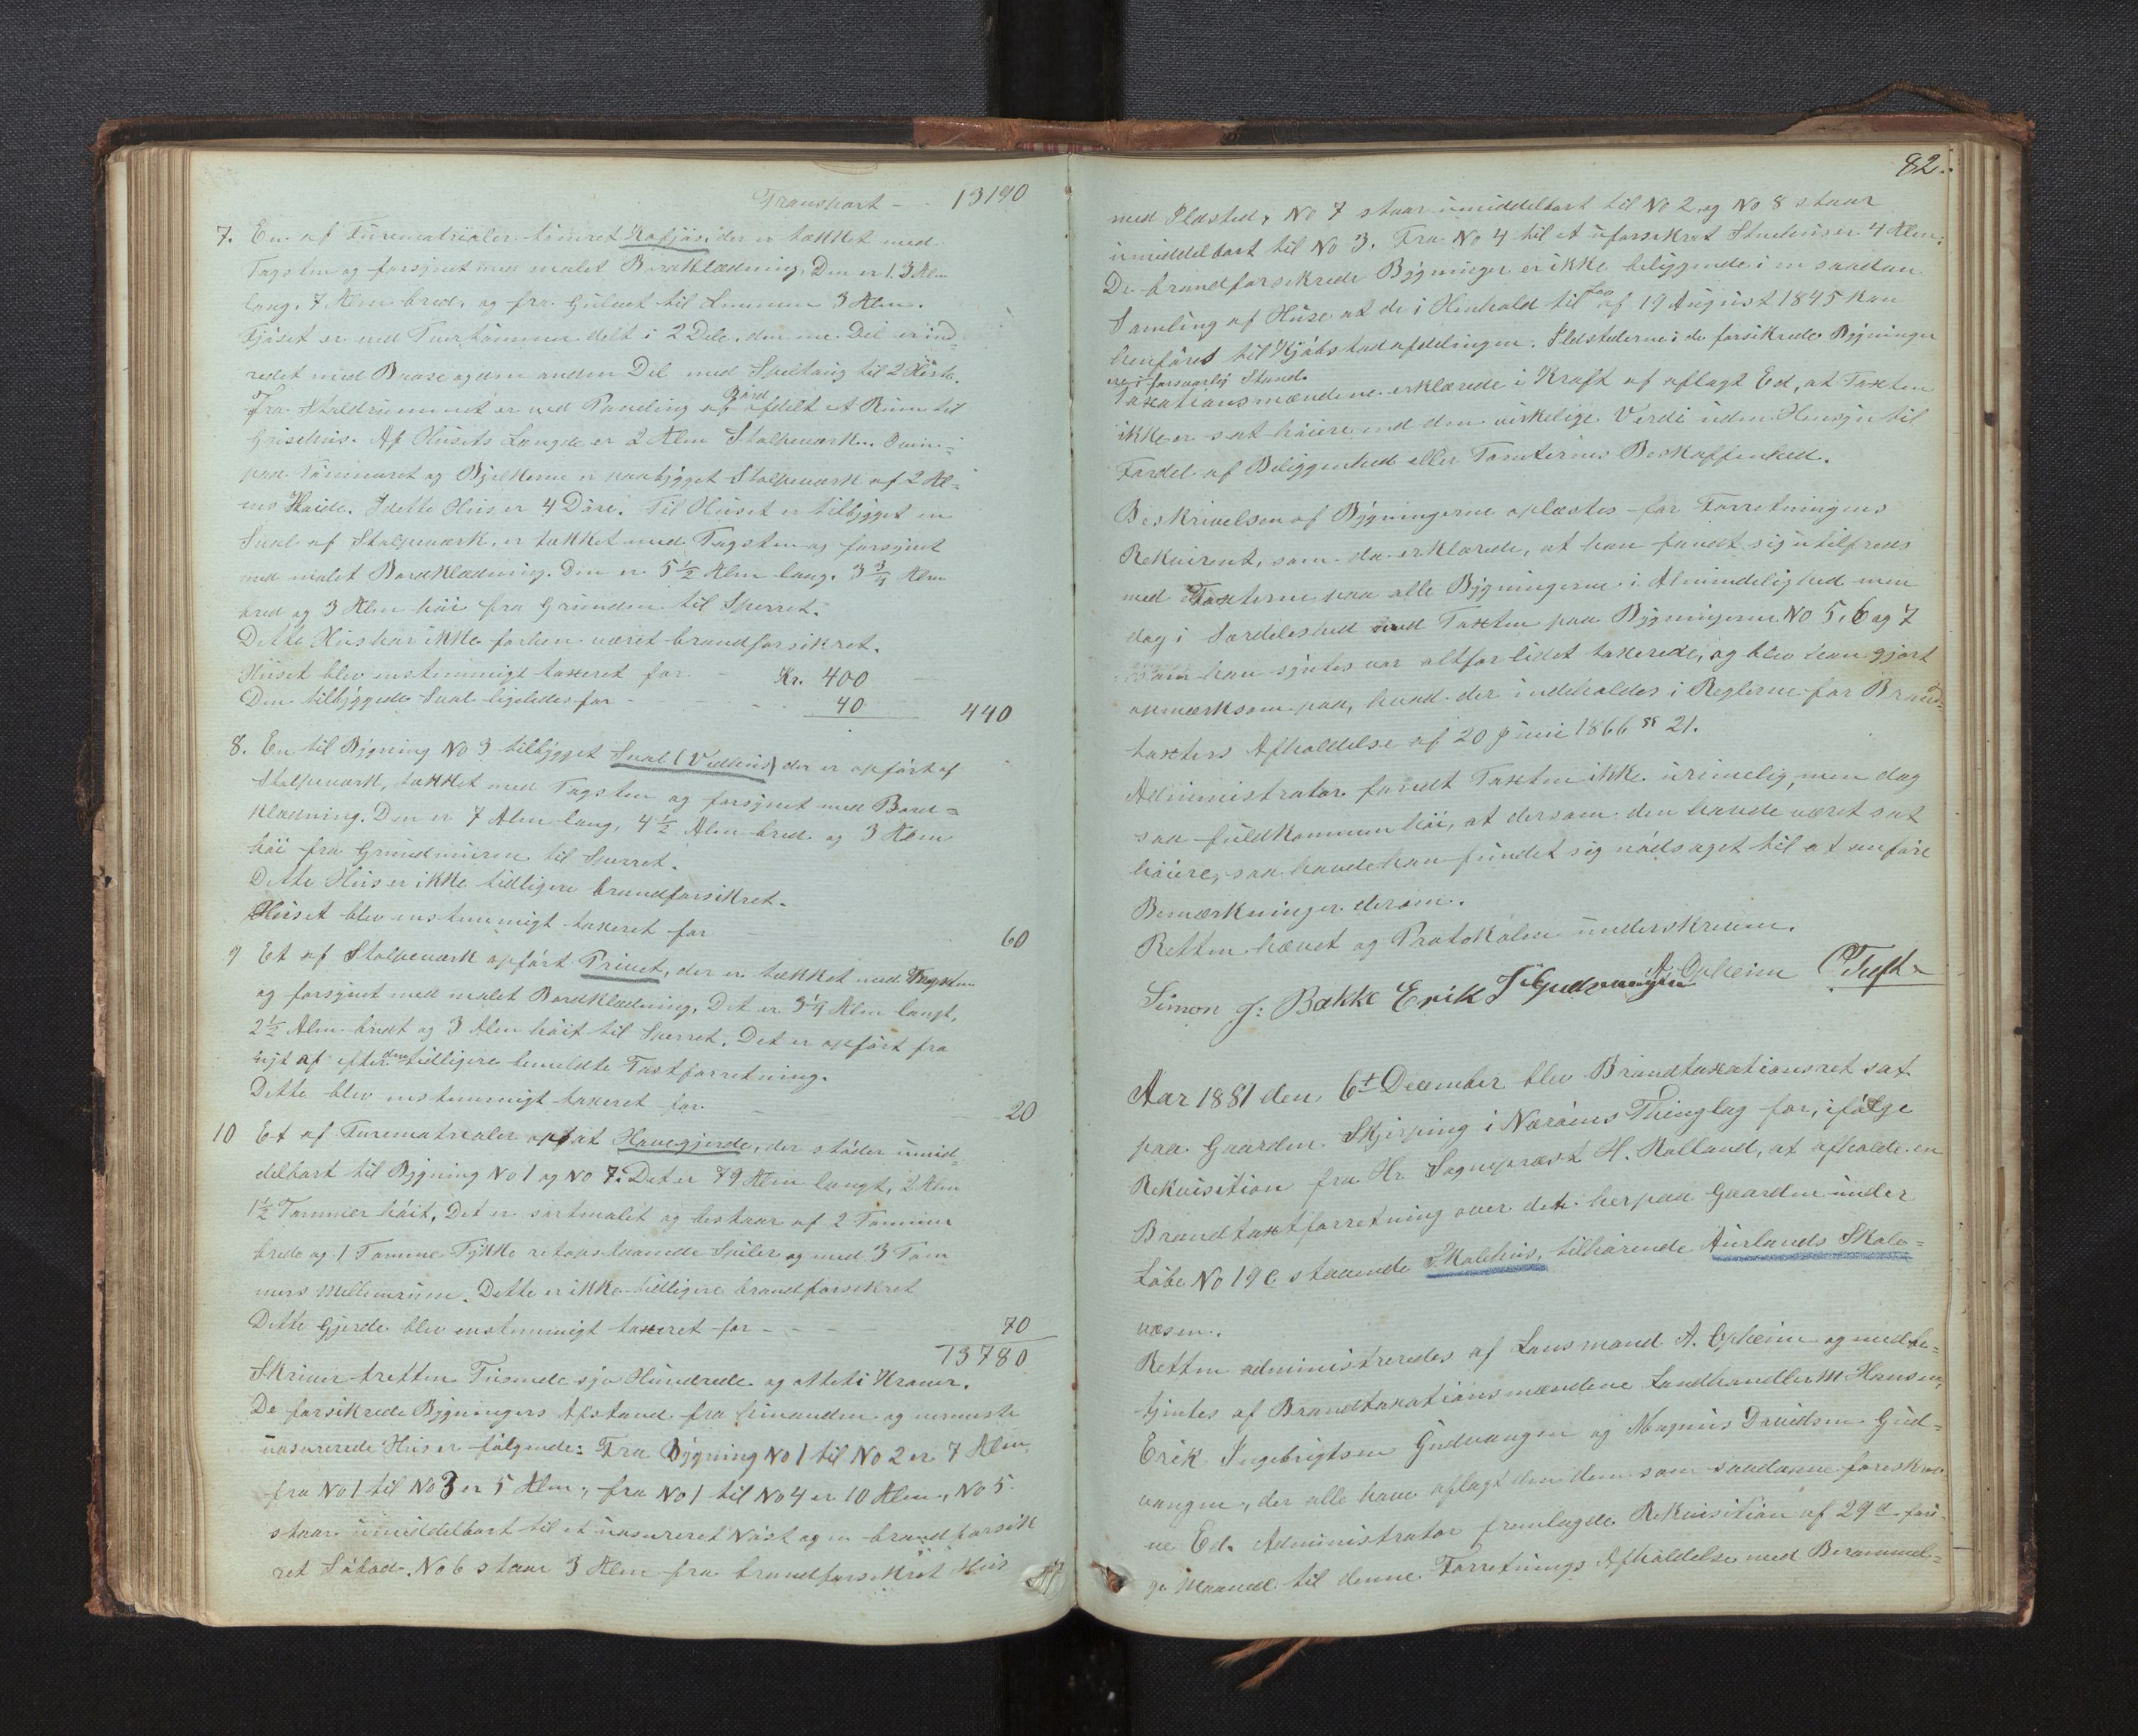 Transport - - 13190
7. En af Furematrialer tömret Kofjös, der er tækket med
Tagsten og forsynet med malet Bordklædning. Den er 13 Alen
lang, 7 Alen bred, og fra Gulvet til 3 Alen.
Fjöset er ved Tvertömmer delt i 2 Dele, den ene Del er ind-
redet med Baase og den anden Del med Spiltoug til 2 Heste.
Fra Staldrummet er ved Paneling af Bord afdelt et Rum til
Grisehus. Af Husets Længde er 2 Alen Stolpeværk. Oven-
paa Tömmeret og Bjelkerne er paabygget Stolpeværk af 2 Al-
ens Höide. I dette Hus er 4 Döre. Til Huset er tilbygget en
Sval af Stolpeværk, er tækket med Tagsten og forsynet
med malet Bordklædning. Den er 5 1/2 Alen lang, 3 3/4 Alen
bred og 3 Alen höi fra Grunden til Sperret.
Dette Hus har ikke forhen været brandforsikret.
Huset blev enstemmigt taxeret for - Kr. 400
Den tilbyggede Sval ligeledes for - - - 40 440
8. En til Bygning No 3 tilbygget Sval (Vedhus) der er opfört af
Stolpeværk, tækket med Tagsten og forsynet med Bord=
klædning. Den er 7 Alen lang, 4 1/2 Alen bred og 3 Alen
höi fra Grundmuren til Sperret.
Dette Hus er ikke tidligere brandforsikret.
Huset blev enstemmigt taxeret for 60
9 Et af Stolpeværk opfört Privet, der er tækket med Tagsten
og forsynet med malet Bordklædning. Det er 3 1/4 Alen langt,
2 1/2 Alen bredt og 3 Alen höit til Sperret. Det er opfört fra
nyt af efter den tidligere bemeldte Taxtforretning.
Dette blev enstemmigt taxeret for - 20
10 Et af Furematrialer opfört Havegjerde, der stöder umid-
delbart til Bygning No 1 og No 7. Det er 79 Alen langt, 2 Alen
1 1/2 Tommer höit. Det er sortmalet og bestaar af 2 Tommer
brede og 1 Tomme Tykke retopstaaende Spiler og med 3 Tom-
mers Mellemrum. Dette er ikke tidligere brandforsikret
Dette Gjerde blev enstemmigt taxeret for - - 70
13780
Skriver tretten Tusinde syv Hundrede og otteti Kroner.
De forsikrede Bygningers Afstand fra hinanden og nærmeste
uasurerede Hus er fölgende: Fra Bygning No 1 til No 2 er 7 Alen,
fra No 1 til No 3 er 5 Alen, fra No 1 til No 4 er 10 Alen, No 5
staar umiddelbart til et uasureret Nöst og en brandforsik
ret Söbod. No 6 staar 3 Alen fra brandforsikret Hus
82.
med Ildsted, No 7 staar umiddelbart til No 2, og No 8 staar
umiddelbart til No 3. Fra No 4 til et uforsikret Stuehus er 4 Alen.
De brandforsikrede Bygninger er ikke beliggende i en saadan
Samling af Huse at de i Henhold til Lov af 19 August 1845 kan
henföres til Kjöbstadafdelingen. Ildstederne i de forsikrede Bygninger
ere i forsvarlig Stand.
Taxationsmændene erklærede i Kraft af aflagt Ed, at Taxten
ikke er sat höiere end den virkelige Verdi uden Hensyn til
Fordel af Beliggenhed eller Tomternes Beskaffenhed.
Beskrivelsen af Bygningerne oplæstes for Forretningens
Rekvirent, som da erklærede, at han fandt sig utilfreds
med Taxterne paa alle Bygningerne i Almindelighed men
dog i Særdeleshed med Taxten paa Bygningerne No 5, 6 og 7
som han syntes var altfor lidet taxerede, og blev han gjort
opmærksom paa, hvad der indeholdes i Reglerne for Brand=
taxters Afholdelse af 20 Juni 1866 §§ 21.
Administrator fandt Taxten ikke urimelig, men dog
saa fuldkommen höi, at dersom den havde været sat
höiere, saa havde han fundet sig nödsaget til at anföre
Bemærkninger derom.
Retten hævet og Protokolen underskreven.
Simon J: Bakke Erik I Gudvangen A. Opheim
Aar 1881 den 6t December blev Brandtaxationsret sat
paa Gaarden Skjerping i Næröens Thinglag for, ifölge
Rekvisition fra Hr. Sogneprest H. Kolland, at afholde en
Brandtaxtforretning over det herpaa Gaarden under
Löbe No 19c staaende Skolehus, tilhörende Aurlands Skole=
væsen.
Retten administreredes af Lensmand A. Opheim og medbe=
tjentes af Brandtaxationsmændene Landhandler M. Hansen,
Erik Ingebrigtsen Gudvangen og Magnus Davidsen Gud=
vangen, der alle have aflagt den dem som saadanne foreskrev-
ne Ed. Administrator fremlagde Rekvisition af 29d fori-
ge Maaned til denne Forretnings Afholdelse med Berammel=